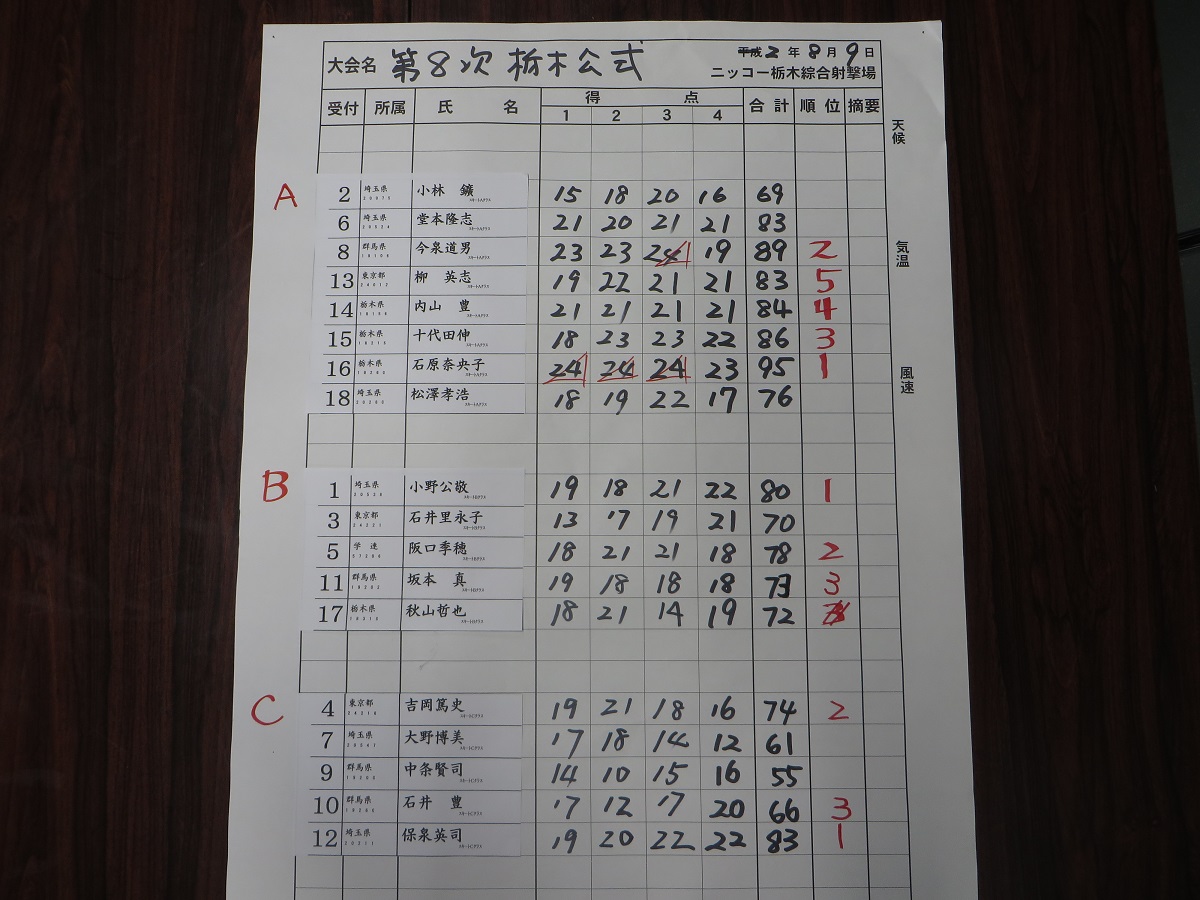 大会名 第8次 栃木公式 平成2年8月9日
ニッコー栃木綜合射撃場
受付 所属 氏名 得点 合計 順位 摘要
1 2 3 4
天候
気温
風速
A
2 埼玉県 小林 鑛 15 18 20 16 69
6 埼玉県 堂本隆志 21 20 21 21 83
8 群馬県 今泉道男 23 23 24 19 89 2
13 東京都 柳 英志 19 22 21 21 83 5
14 栃木県 内山 豊 21 21 21 21 84 4
15 栃木県 十代田伸 18 23 23 22 86 3
16 栃木県 石原奈央子 24 24 24 23 95 1
18 埼玉県 松澤孝浩 18 19 22 17 76
B
1 埼玉県 小野公敬 19 18 21 22 80 1
3 東京都 石井里永子 13 17 19 21 70
5 学連 阪口季穂 18 21 21 18 78 2
11 群馬県 坂本 真 19 18 18 18 73 3
17 栃木県 秋山哲也 18 21 14 19 72
C
4 東京都 吉岡篤史 19 21 18 16 74 2
7 埼玉県 大野博美 17 18 14 12 61
9 群馬県 中条賢司 14 10 15 16 55
10 群馬県 石井 豊 17 12 17 20 66 3
12 埼玉県 保泉英司 19 20 22 22 83 1